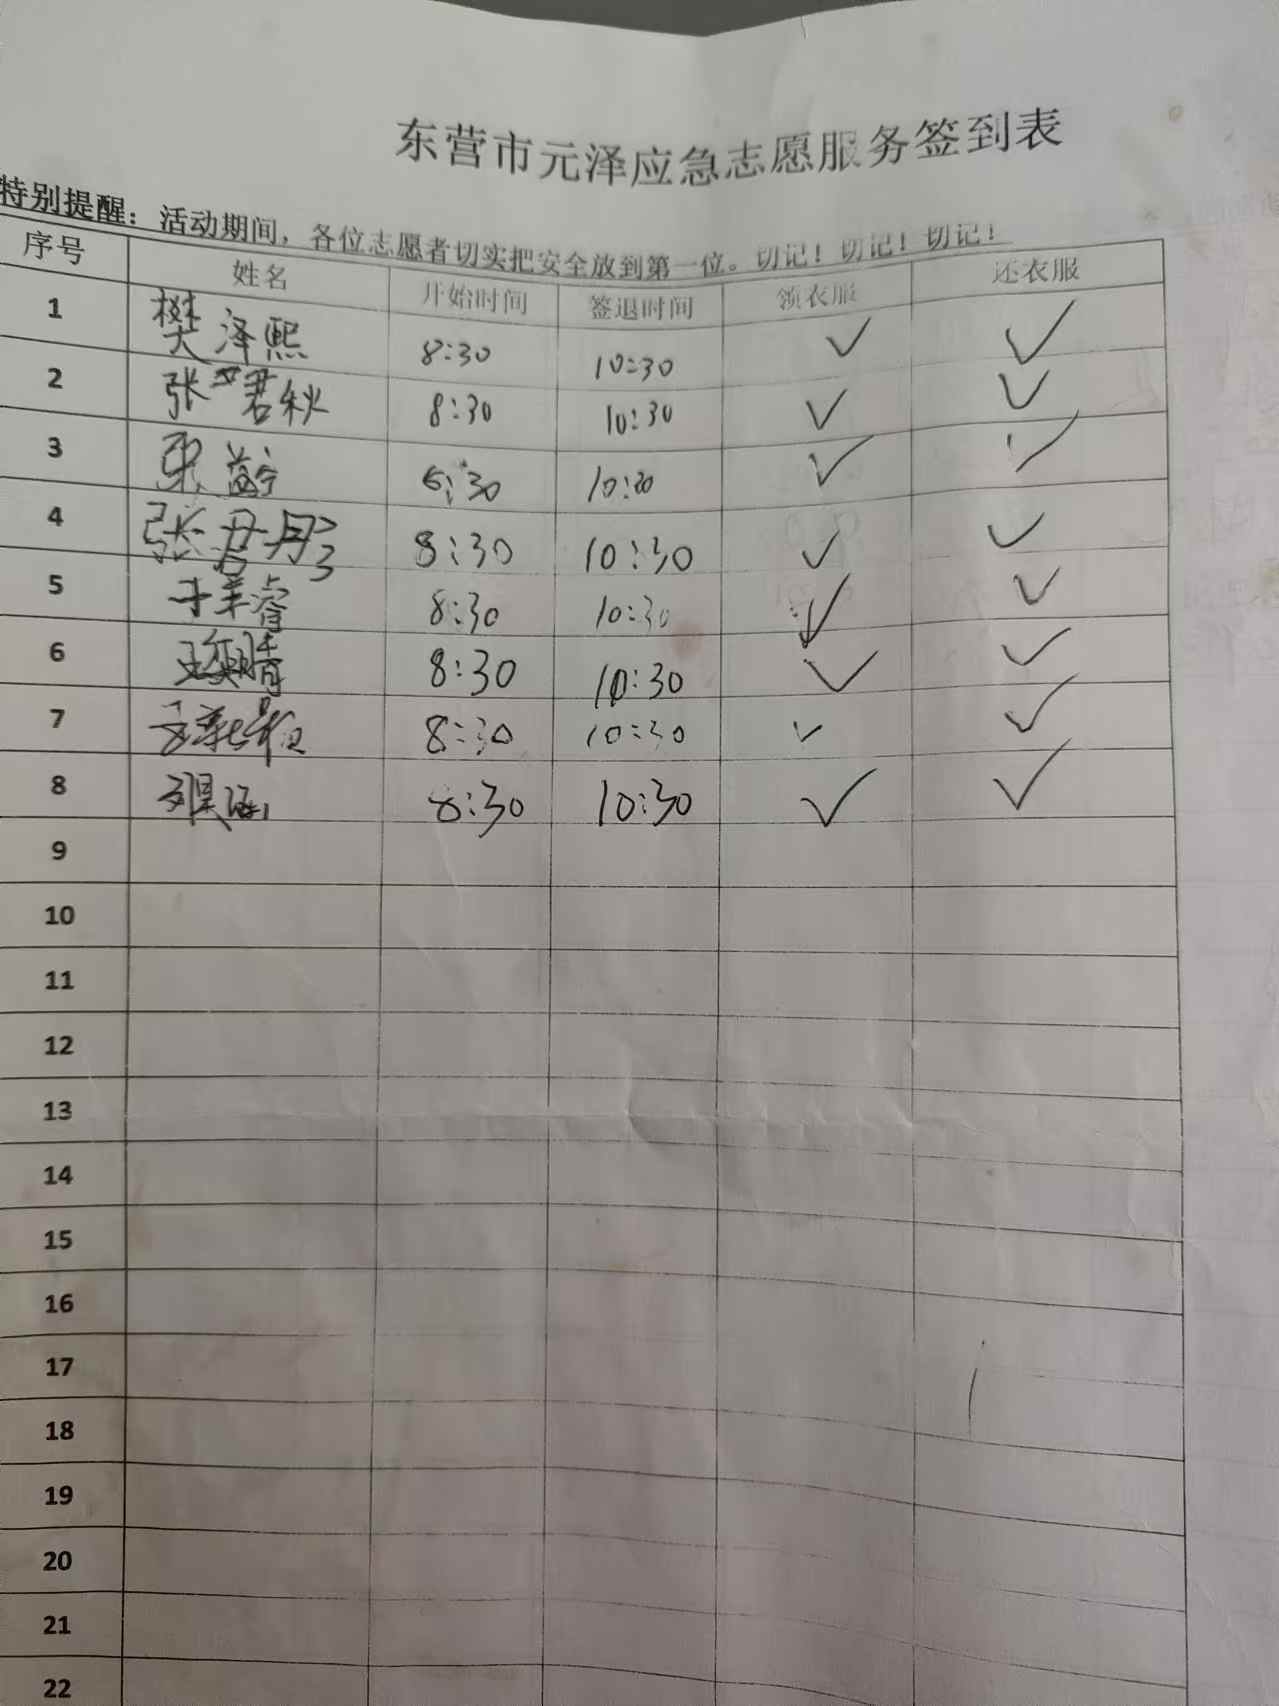 东营市元泽应急志愿服务签到表
特别提醒：活动期间，各位志愿者切实把安全放到第一位。切记！切记！切记！
序号 姓名 开始时间 签退时间 领衣服 还衣服
1 樊泽熙 8:30 10:30 ✓ ✓
2 张君秋 8:30 10:30 ✓ ✓
3 6:30 10:30 ✓ ✓
4 张 8:30 10:30 ✓ ✓
5 睿 8:30 10:30 ✓ ✓
6 王 晴 8:30 10:30 ✓ ✓
7 8:30 10:30 ✓ ✓
8 8:30 10:30 ✓ ✓
9
10
11
12
13
14
15
16
17
18
19
20
21
22